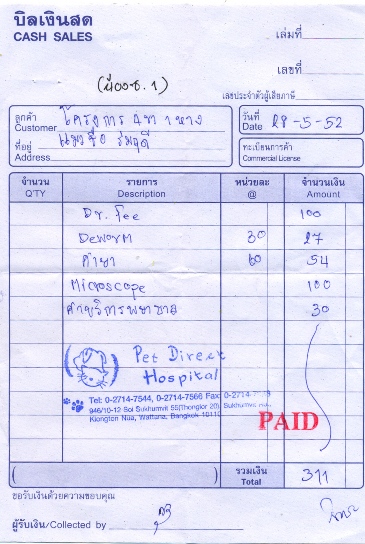 บิลเงินสด
CASH SALES
เล่มที่
เลขที่
(น้องช. 1)
เลขประจำตัวผู้เสียภาษี
ลูกค้า
Customer โครงการ 4 ขา 1 หาง
ที่อยู่ แมวชื่อ ร่มฤดี
Address
วันที่
Date 28-5-52
ทะเบียนการค้า
Commercial License
จำนวน รายการ หน่วยละ จำนวนเงิน
Q'TY Description @ Amount
Dr. fee 100
Deworm 30 27
ค่ายา 60 54
Microscope 100
ค่าบริการพยาบาล 30
Pet Direct
Hospital
Tel: 0-2714-7544, 0-2714-7566 Fax: 0-2714-
946/10-12 Soi Sukhumvit 55(Thonglor 20), Sukhumvit Rd.,
Klongton Nua, Wattana, Bangkok 10110
PAID
( ) รวมเงิน
Total 311
ขอรับเงินด้วยความขอบคุณ
ผู้รับเงิน/Collected by